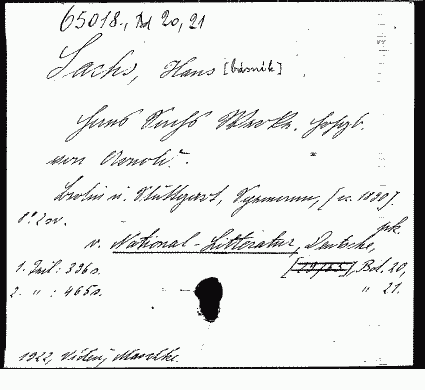 65018., Bd 20, 21
Sachs, Hans [básník]
Hans Sachs Werke. Hrsgb.
von Arnold.
Berlin u. Stuttgart, Spemann, [ca 1890].
8°. 2 sv.
v. National-Litteratur, Deutsche,
1. Theil: 336 s. Bd. 20,
2. " : 465 s. " 21.
1922,